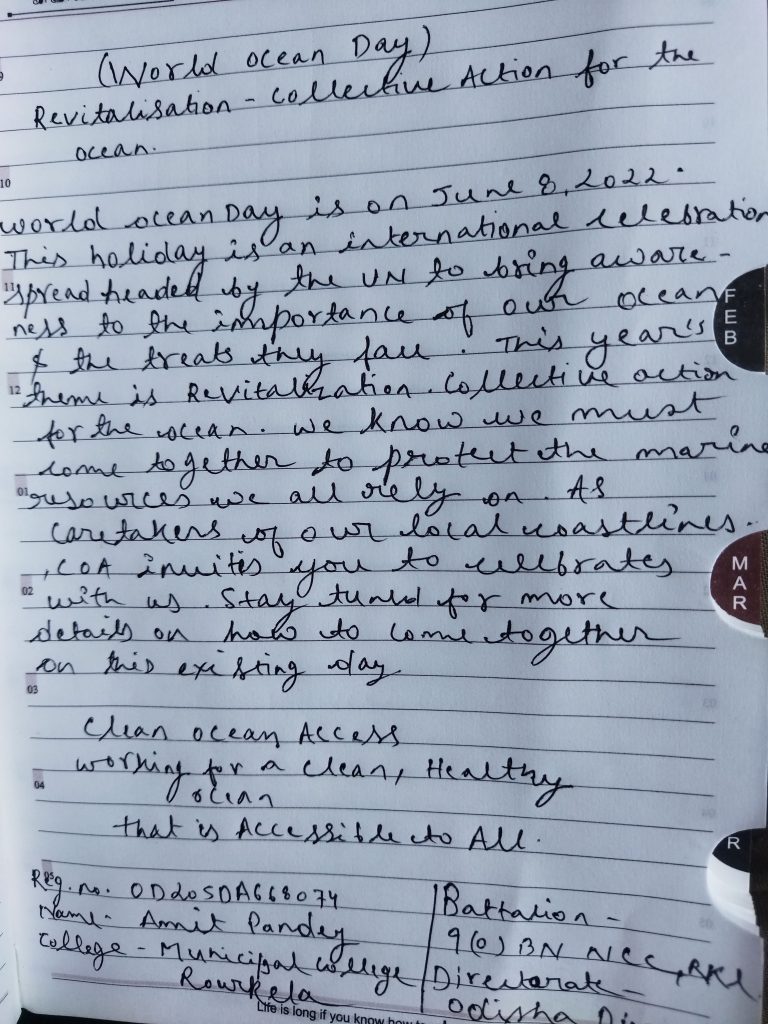 (World Ocean Day)
Revitalisation - Collective Action for the
ocean.
10
World ocean Day is on June 8, 2022.
This holiday is an international celebration
11 spread headed by the UN to bring aware-
ness to the importance of our ocean
& the treats they face. This year's
12 theme is Revitalization. Collective action
for the ocean. We know we must
come together to protect the marine
01 resources we all rely on. As
caretakers of our local coastlines.
, COA invites you to celebrates
02 with us. Stay tuned for more
details on how to come together
on this existing day
03
Clean ocean Access
working for a clean, Healthy
04 ocean
that is Accessible to All.
Reg. no. OD20SDA668074
Name - Amit Pandey
College - Municipal college
Rourkela
Battalion -
9 (O) BN NCC, RKL
Directorate -
Odisha
Life is long if you know how
FEB
MAR
R